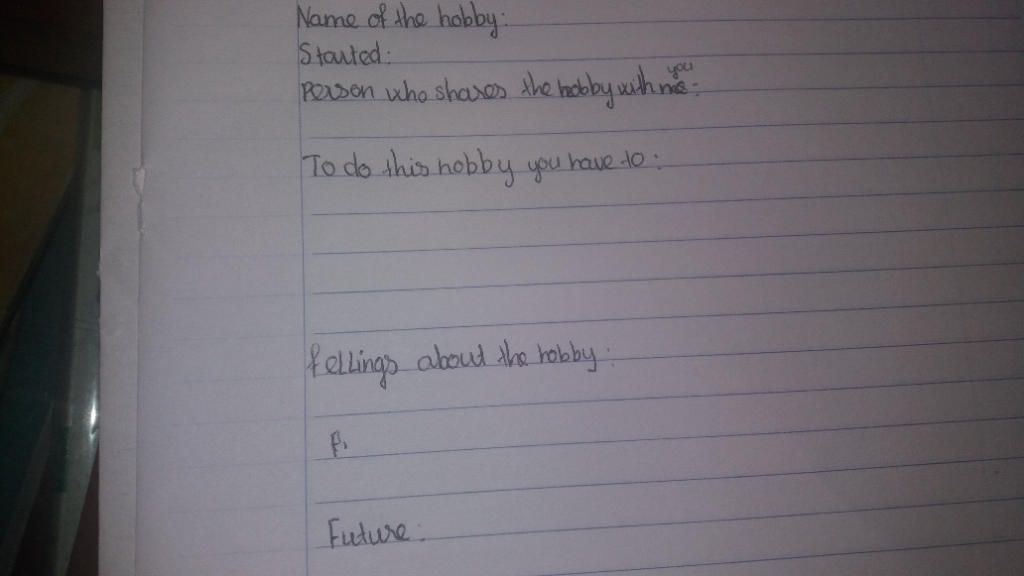 Name of the hobby:
Started:
Person who shares the hobby with me you:
To do this hobby you have to:
fellings about the hobby:
F.
Future: